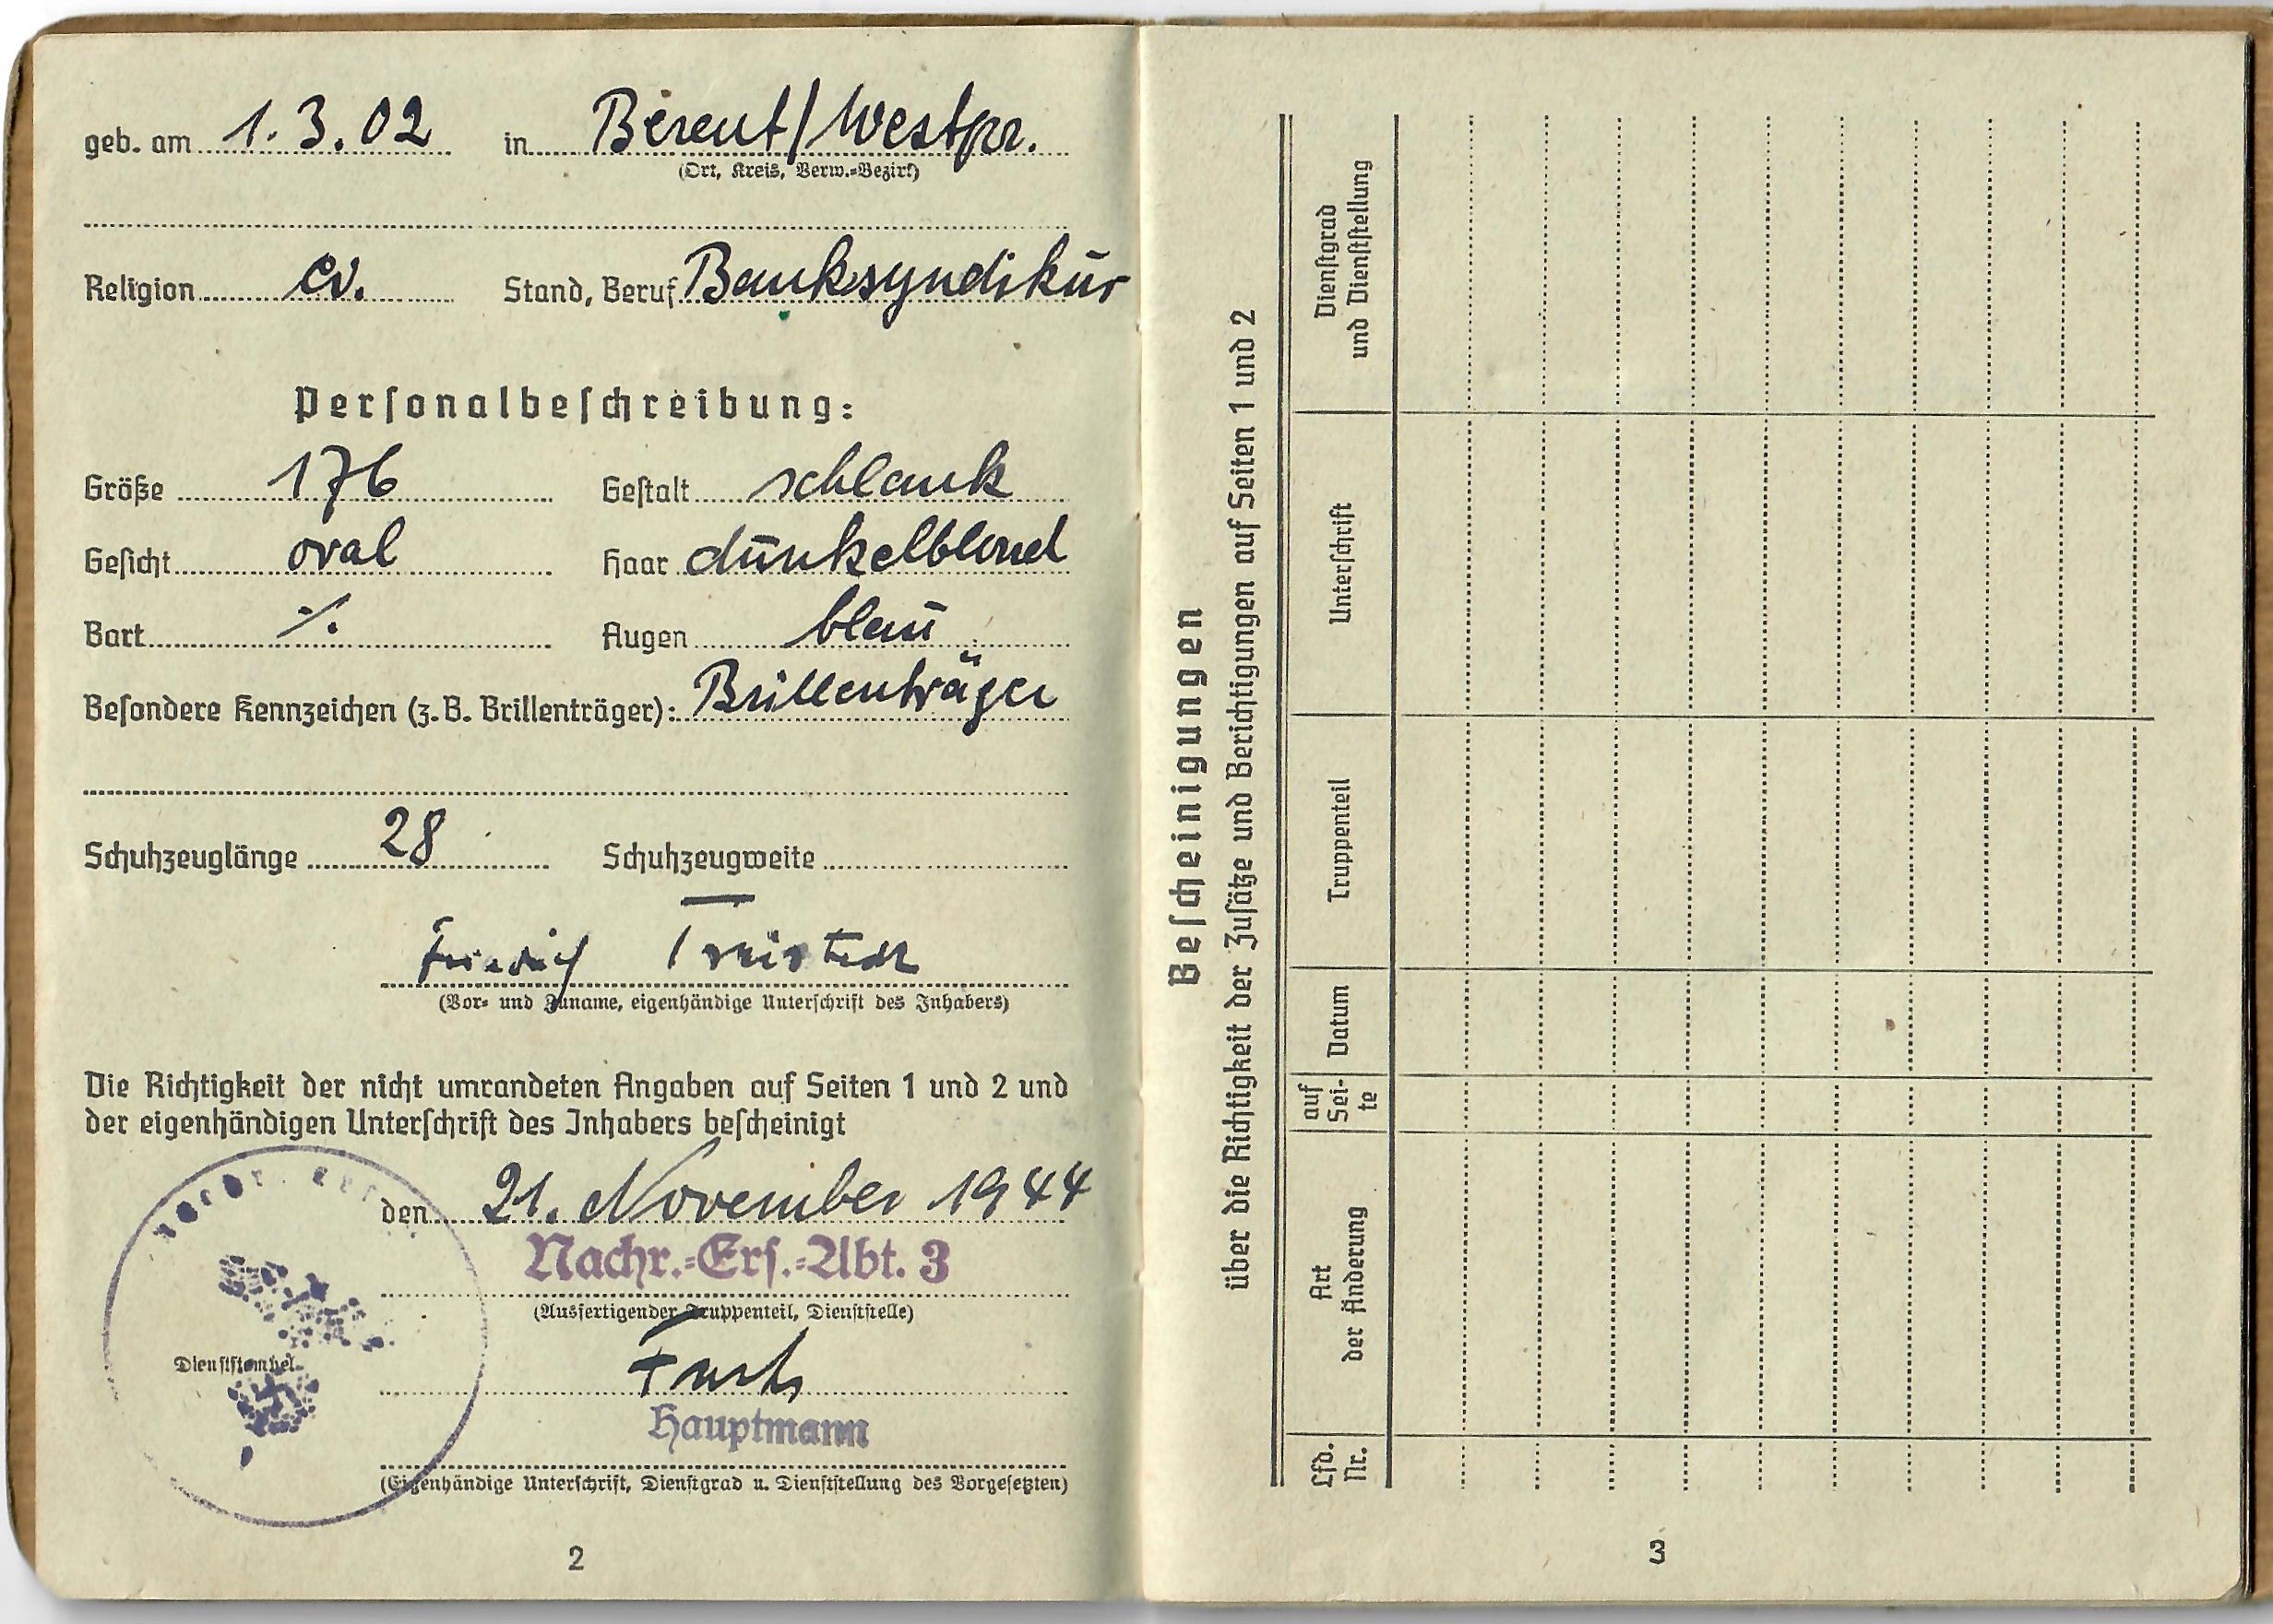 geb. am 1.3.02 in Berent/Westpr.
(Ort, Kreis, Verw.=Bezirk)
Religion ev. Stand, Beruf Banksyndikus
Personalbeschreibung:
Größe 176 Gestalt schlank
Gesicht oval Haar dunkelblond
Bart ·/. Augen blau
Besondere Kennzeichen (z. B. Brillenträger): Brillenträger
Schuhzeuglänge 28 Schuhzeugweite —
Friedrich
(Vor= und Zuname, eigenhändige Unterschrift des Inhabers)
Die Richtigkeit der nicht umrandeten Angaben auf Seiten 1 und 2 und
der eigenhändigen Unterschrift des Inhabers bescheinigt
den 21. November 1944
Nachr.=Ers.=Abt. 3
(Ausfertigender Truppenteil, Dienststelle)
Dienststempel
Hauptmann
(Eigenhändige Unterschrift, Dienstgrad u. Dienststellung des Vorgesetzten)
2
Bescheinigungen
über die Richtigkeit der Zusätze und Berichtigungen auf Seiten 1 und 2
Lfd.
Nr.
Art
der Änderung
auf
Sei-
te
Datum
Truppenteil
Unterschrift
Dienstgrad
und Dienststellung
3